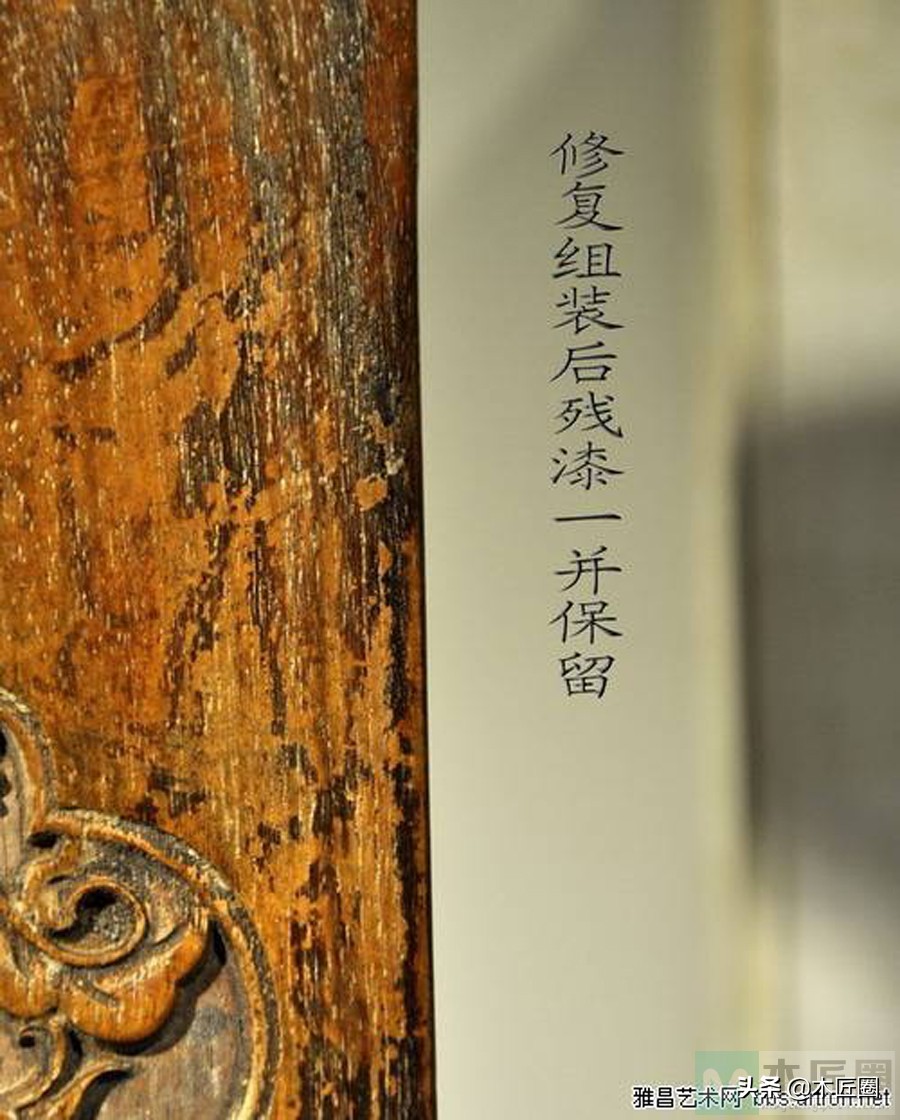 修复组装后残漆一并保留
木匠圈
雅昌艺术网 bbs.artron.net
头条@木匠圈